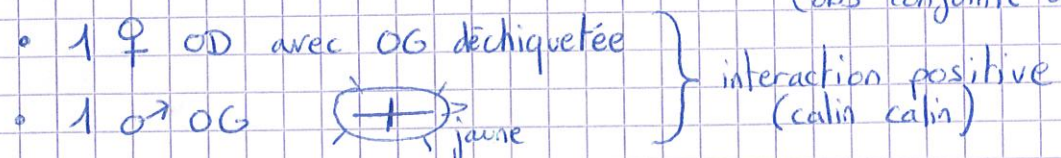 • 1 ♀ OD avec OG déchiquetée
• 1 ♂ OG jaune
interaction positive
(calin calin)